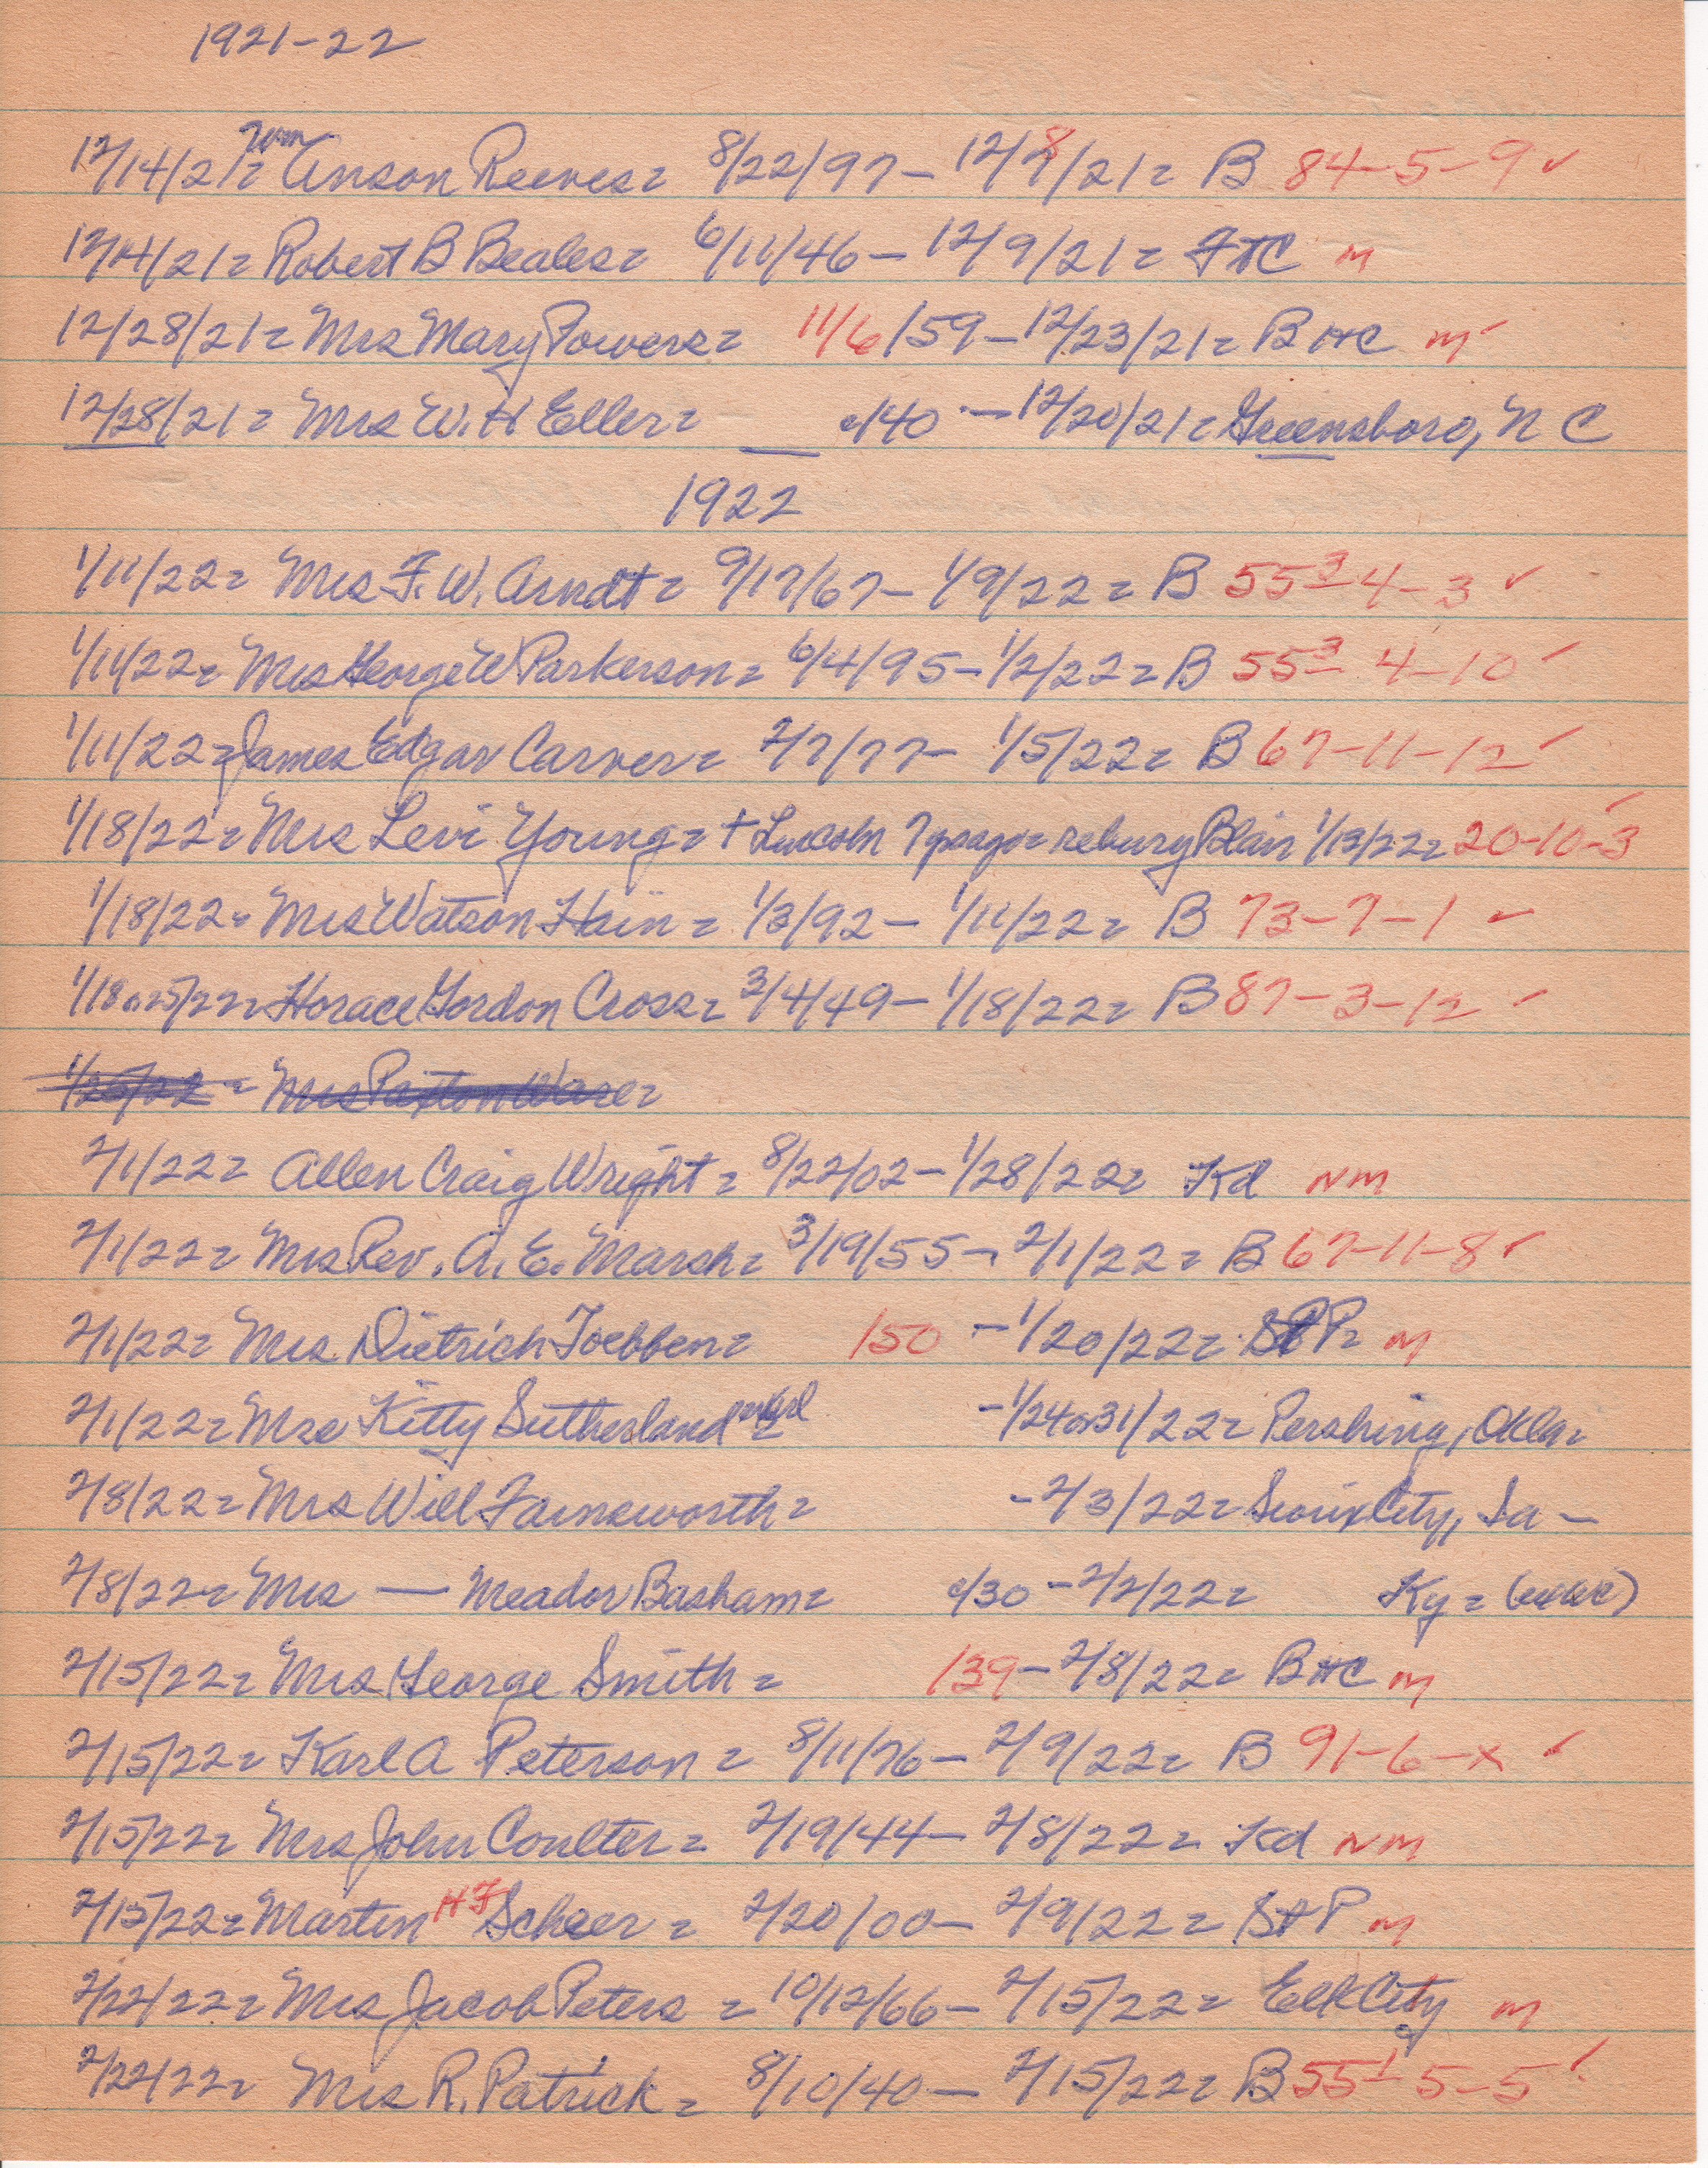 1921-22
12/14/21= Wm Anson Reeves= 8/22/97- 12/8/21= B 84-5-9 ✓
12/14/21= Robert B Beales= 6/11/46- 12/9/21= FtC M
12/28/21= Mrs Mary Powers= 11/6/59-12/23/21= B HC M ✓
12/28/21= Mrs W. H Eller= c/40 -12/20/21= Greensboro, N C
1922
1/11/22= Mrs F. W. Arndt= 9/17/67- 1/9/22= B 55³-4-3 ✓
1/11/22= Mrs George W Parkerson= 6/4/95-1/2/22= B 55³-4-10 ✓
1/11/22= James Edgar Carver= 2/7/77- 1/5/22= B 67-11-12 ✓
1/18/22= Mrs Levi Young= + Lincoln 7 yrs ago= rebury Blair 1/13/22= 20-10-3 ✓
1/18/22= Mrs Watson Hain= 1/3/92- 1/11/22= B 73-7-1 ✓
1/18 or 25/22= Horace Gordon Cross= 3/4/49- 1/18/22= B 87-3-12 ✓
1/26/22 = Mrs Paxton Ware=
2/1/22= Allen Craig Wright= 8/22/02-1/28/22= Kd NM
2/1/22= Mrs Rev. A. E. Marsh= 3/19/55- 2/1/22= B 67-11-8 ✓
2/1/22= Mrs Dietrich Toebben= /50 -1/20/22= St P= M
2/1/22= Mrs Kitty Sutherland -1/24 or 31/22= Pershing, Okla=
2/8/22= Mrs Will Farnsworth= -2/3/22= Sioux City, Ia -
2/8/22= Mrs — Meador Basham= c/30 -2/2/22= Ky=
2/15/22= Mrs George Smith= /39-2/8/22= B HC M
2/15/22= Karl A Peterson= 8/11/76- 2/9/22= B 91-6-x ✓
2/15/22= Mrs John Coulter= 2/19/44- 2/8/22= Kd NM
2/15/22= Martin HF Scheer= 2/20/00- 2/9/22= St P M
2/22/22= Mrs Jacob Peters = 10/12/66- 2/15/22= Elk City M
2/22/22= Mrs R. Patrick= 8/10/40- 2/15/22= B 55¹-5-5 ✓